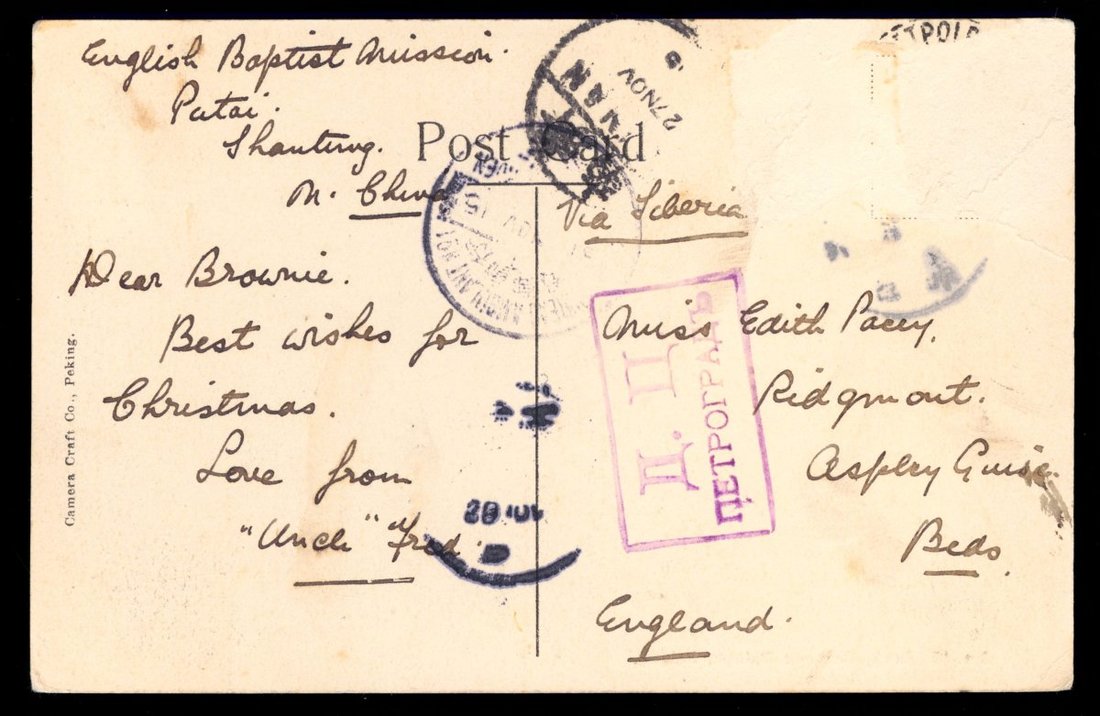 English Baptist Mission.
Putai.
Shantung.
N. China
Post Card
27 NOV
Via Siberia
Dear Brownie.
Best wishes for
Christmas.
Love from
"Uncle" Fred.
Miss Edith Pacey,
Ridgmont.
Aspley Guise.
Beds.
England.
Д. Ц.
ПЕТРОГРАДЪ
Camera Craft Co., Peking.